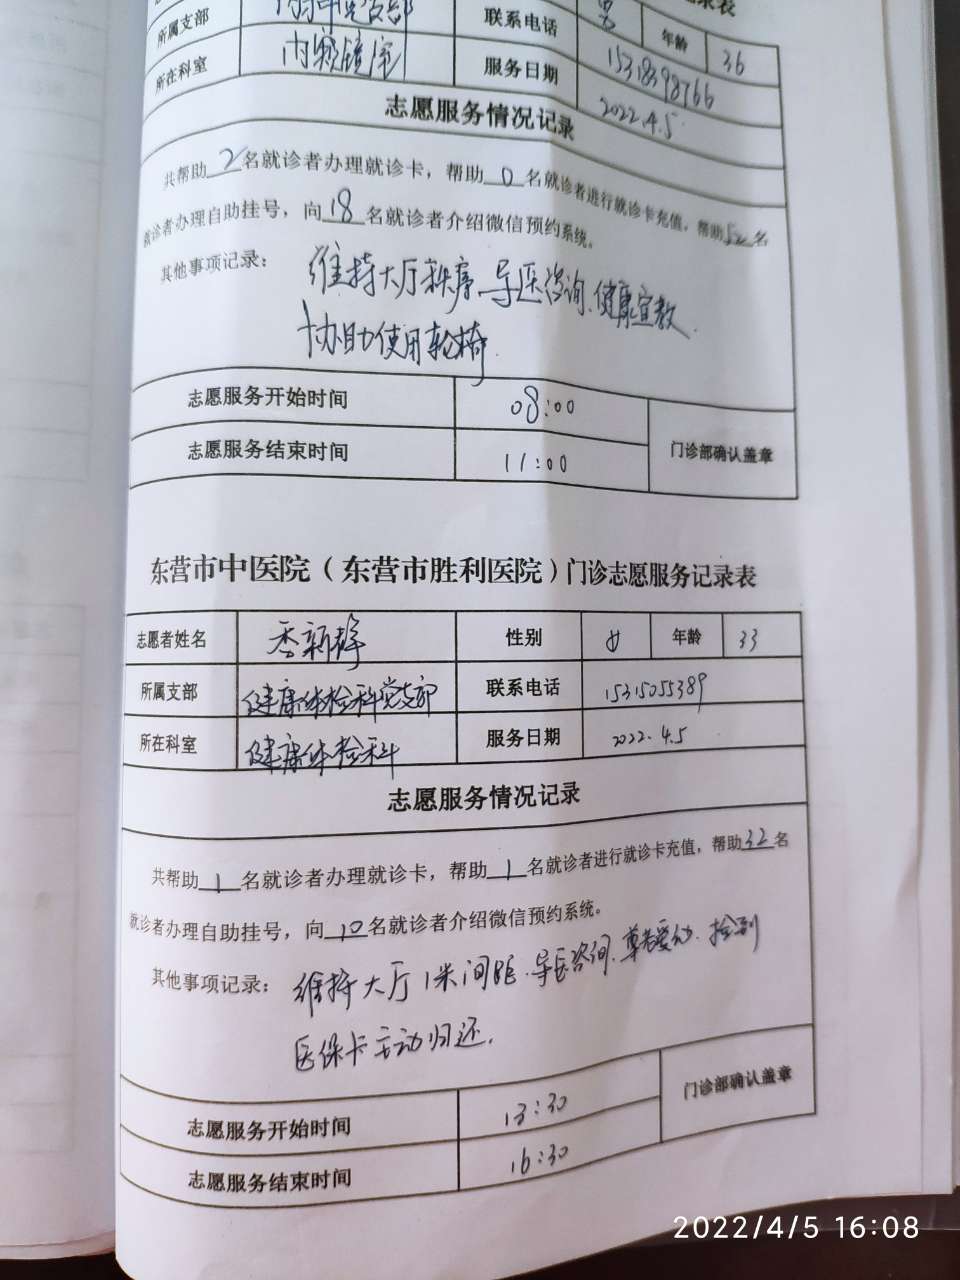 记录表
所属支部 党支部 联系电话 男 年龄 36
所在科室 内窥镜室 服务日期 15318398766
2022.4.5
志愿服务情况记录
共帮助2名就诊者办理就诊卡，帮助0名就诊者进行就诊卡充值，帮助52名
就诊者办理自助挂号，向18名就诊者介绍微信预约系统。
其他事项记录： 维持大厅秩序、导医咨询、健康宣教
协助使用轮椅
志愿服务开始时间 08:00
志愿服务结束时间 11:00 门诊部确认盖章
东营市中医院（东营市胜利医院）门诊志愿服务记录表
志愿者姓名 新静 性别 女 年龄 33
所属支部 健康体检科党支部 联系电话 15315055389
所在科室 健康体检科 服务日期 2022.4.5
志愿服务情况记录
共帮助1名就诊者办理就诊卡，帮助1名就诊者进行就诊卡充值，帮助32名
就诊者办理自助挂号，向10名就诊者介绍微信预约系统。
其他事项记录： 维持大厅1米间距、导医咨询、尊老爱幼、捡到
医保卡主动归还.
志愿服务开始时间 13:30 门诊部确认盖章
志愿服务结束时间 16:30
2022/4/5 16:08